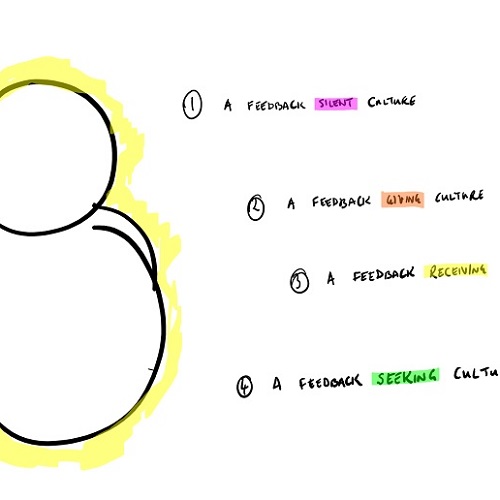 ① A FEEDBACK SILENT CULTURE
② A FEEDBACK GIVING CULTURE
③ A FEEDBACK RECEIVING
④ A FEEDBACK SEEKING CULTU